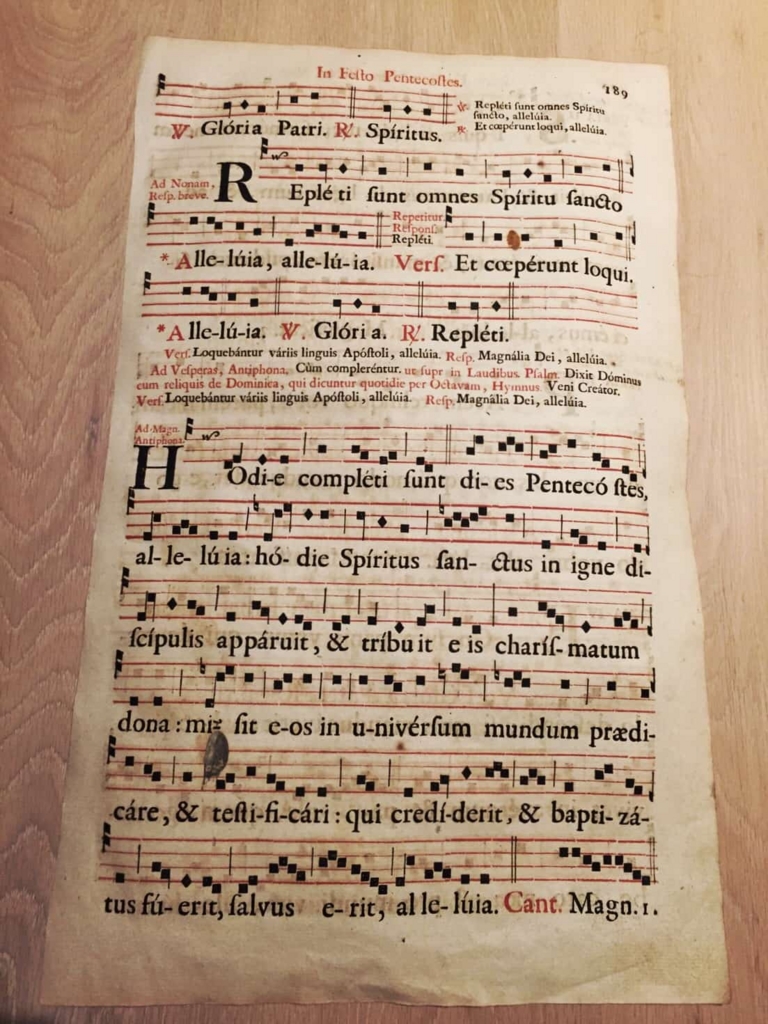 In Feſto Pentecoſtes.
189
℣. Glória Patri. ℟. Spíritus.
℣. Repléti ſunt omnes Spíritu
ſancto, allelúia.
℟. Et cœpérunt loqui, allelúia.
Ad Nonam,
Reſp. breve.
REplé ti ſunt omnes Spíritu ſancto
*Alle-lúia, alle-lú-ia.
Repetitur
Reſponſ.
Repléti.
Verſ. Et cœpérunt loqui.
*Alle-lú-ia. ℣. Glóri a. ℟. Repléti.
Verſ. Loquebántur váriis linguis Apóſtoli, allelúia. Reſp. Magnália Dei, allelúia.
Ad Veſperas, Antiphona. Cùm compleréntur. ut ſupr in Laudibus. Pſalm. Dixit Dóminus
cum reliquis de Dominica, qui dicuntur quotidie per Octavam, Hymnus. Veni Creátor.
Verſ. Loquebántur váriis linguis Apóſtoli, allelúia. Reſp. Magnália Dei, allelúia.
Ad Magn.
Antiphona.
HOdi-e compléti ſunt di-es Pentecó ſtes,
al-le-lú ia: hó-die Spíritus ſan-ctus in igne di-
ſcípulis appáruit, & tríbuit e is charíſ-matum
dona: miſit e-os in u-nivérſum mundum prædi-
cáre, & teſti-fi-cári: qui credí-derit, & bapti-zá-
tus fú-erit, ſalvus e-rit, al le-lúia. Cant. Magn. 1.